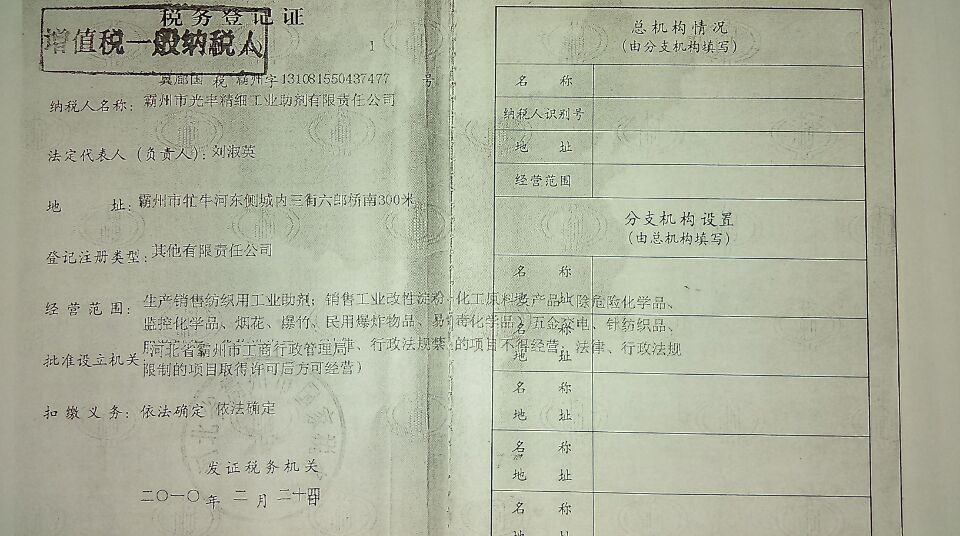 税务登记证
增值税一般纳税人
1
冀廊国 税 霸州字131081550437477 号
纳税人名称：霸州市光丰精细工业助剂有限责任公司
法定代表人（负责人）：刘淑英
地 址：霸州市牤牛河东侧城内三街六郎桥南300米
登记注册类型：其他有限责任公司
经营范围：生产销售纺织用工业助剂；销售工业改性淀粉、化工原料及产品（除危险化学品、
监控化学品、烟花、爆竹、民用爆炸物品、易制毒化学品）五金交电、针纺织品、
律、行政法规禁 的项目不得经营；法律、行政法规
批准设立机关：河北省霸州市工商行政管理局
限制的项目取得许可后方可经营）
扣缴义务：依法确定 依法确定
发证税务机关
二〇一〇年 二月 二十四日
总机构情况
（由分支机构填写）
名 称
纳税人识别号
地 址
经营范围
分支机构设置
（由总机构填写）
名 称
地 址
名 称
地 址
名 称
地 址
名 称
地 址
名 称
地 址